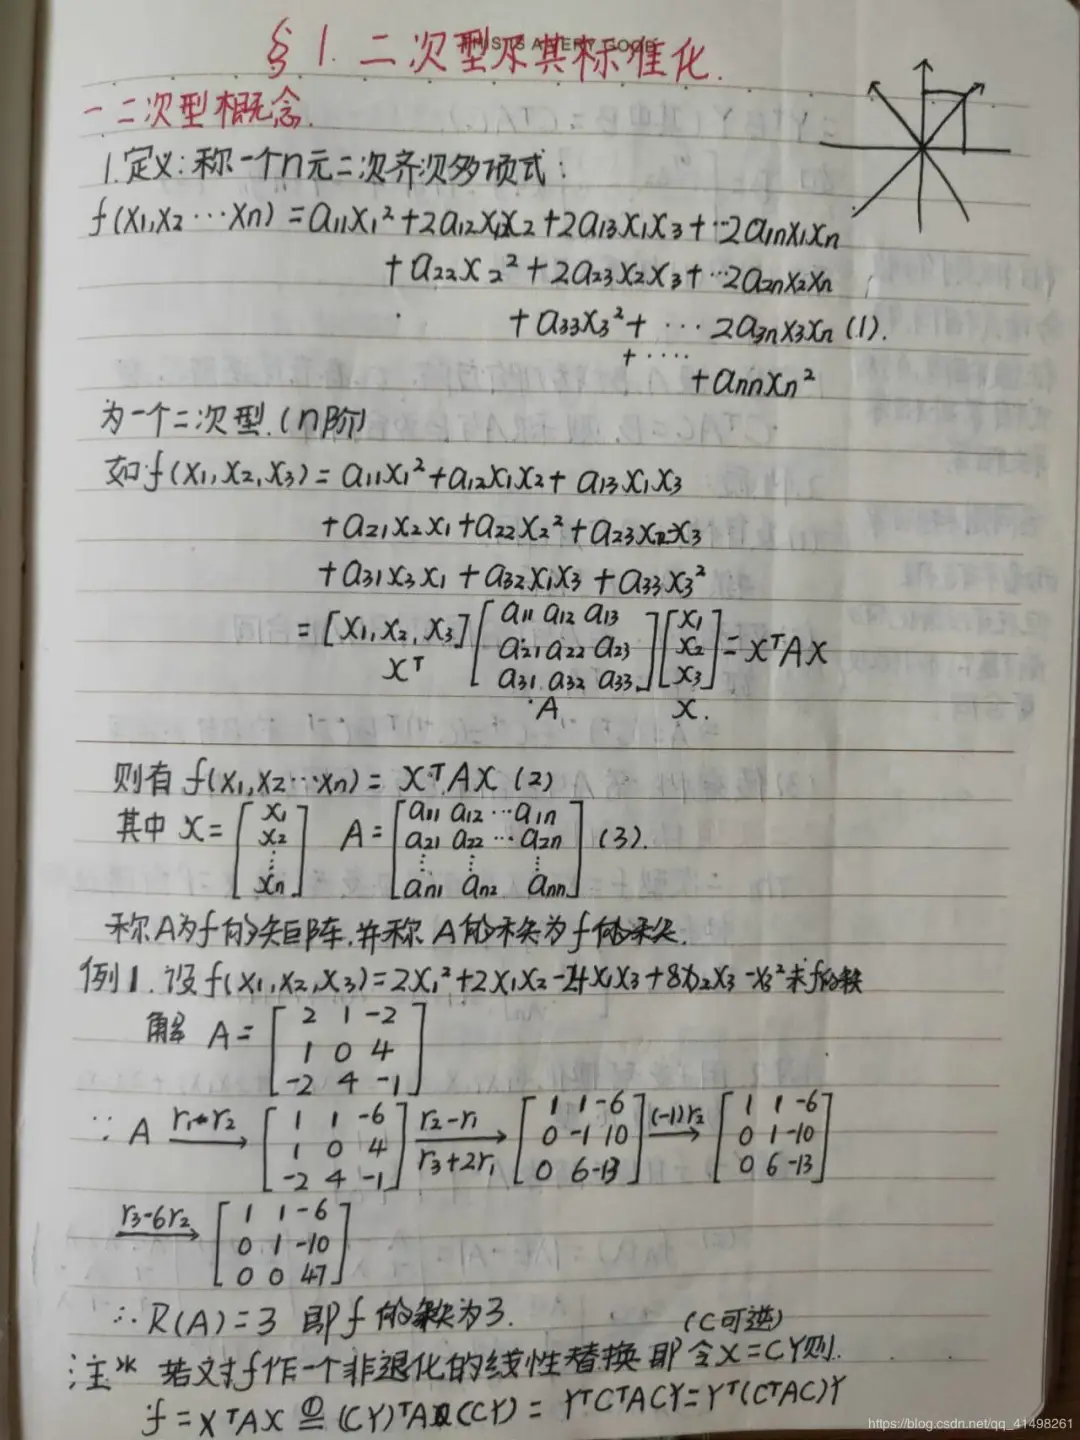 §1. 二次型及其标准化.
一 二次型概念.
1.定义:称一个n元二次齐次多项式:
f(x₁,x₂⋯xn) = a₁₁x₁²+2a₁₂x₁x₂+2a₁₃x₁x₃+⋯2a₁nx₁xn
+a₂₂x₂²+2a₂₃x₂x₃+⋯2a₂nx₂xn
+a₃₃x₃²+ ⋯ 2a₃nx₃xn (1).
+ ⋯⋯
+annxn²
为一个二次型.(n阶)
如f(x₁,x₂,x₃) = a₁₁x₁²+a₁₂x₁x₂+ a₁₃x₁x₃
+a₂₁x₂x₁+a₂₂x₂²+a₂₃x₂x₃
+a₃₁x₃x₁ + a₃₂x₁x₃ + a₃₃x₃²
= [x₁,x₂,x₃] [a₁₁ a₁₂ a₁₃ [x₁
a₂₁ a₂₂ a₂₃ x₂ = xᵀAx
a₃₁ a₃₂ a₃₃] x₃]
xᵀ A x.
则有 f(x₁,x₂⋯xn) = xᵀAx (2)
其中 x= [x₁ x₂ ⋮ xn] A= [a₁₁ a₁₂ ⋯a₁n
a₂₁ a₂₂ ⋯a₂n (3).
⋮ ⋮ ⋮
an₁ an₂ ann]
称A为f的矩阵,并称A的秩为f的秩.
例1.设f(x₁,x₂,x₃)=2x₁²+2x₁x₂-4x₁x₃+8x₂x₃-x₃²求f的秩
解 A= [2 1 -2
1 0 4
-2 4 -1]
∵ A r₁-r₂→ [1 1 -6 r₂-r₁ [1 1 -6 (-1)r₂→ [1 1 -6
1 0 4 r₃+2r₁→ 0 -1 10 0 1 -10
-2 4 -1] 0 6 -13] 0 6 -13]
r₃-6r₂→ [1 1 -6
0 1 -10
0 0 47]
∴ R(A)=3 即f的秩为3.
(C可逆)
注* 若对f作一个非退化的线性替换即令x=CY则.
f = xᵀAx ①= (CY)ᵀA(CY) = YᵀCᵀACY=Yᵀ(CᵀAC)Y
https://blog.csdn.net/qq_41498261